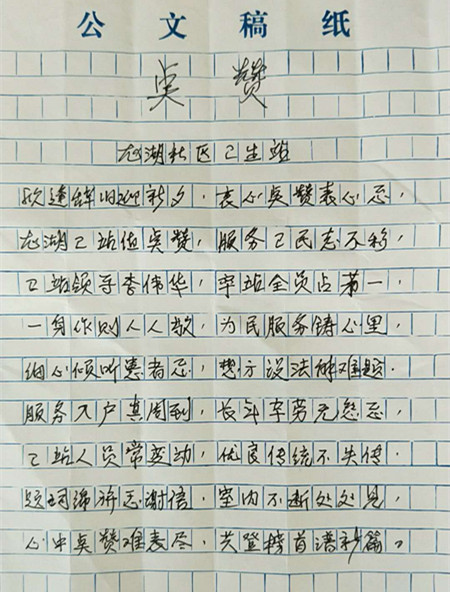 公文稿纸
点赞
龙湖社区卫生站
欣逢辞旧迎新夕，衷心点赞表心意，
龙湖卫站值点赞，服务卫民志不移，
卫站领导李伟华，率站全员占第一，
一身作则人人敬，为民服务铸心里，
细心倾听患者忌，想方设法解难题。
服务入户真周到，长年辛劳无怨忌，
卫站人员常变动，优良传统不失传。
题词锦旗志谢信，室内不断处处见，
心中点赞难表尽，共登榜首谱新篇。